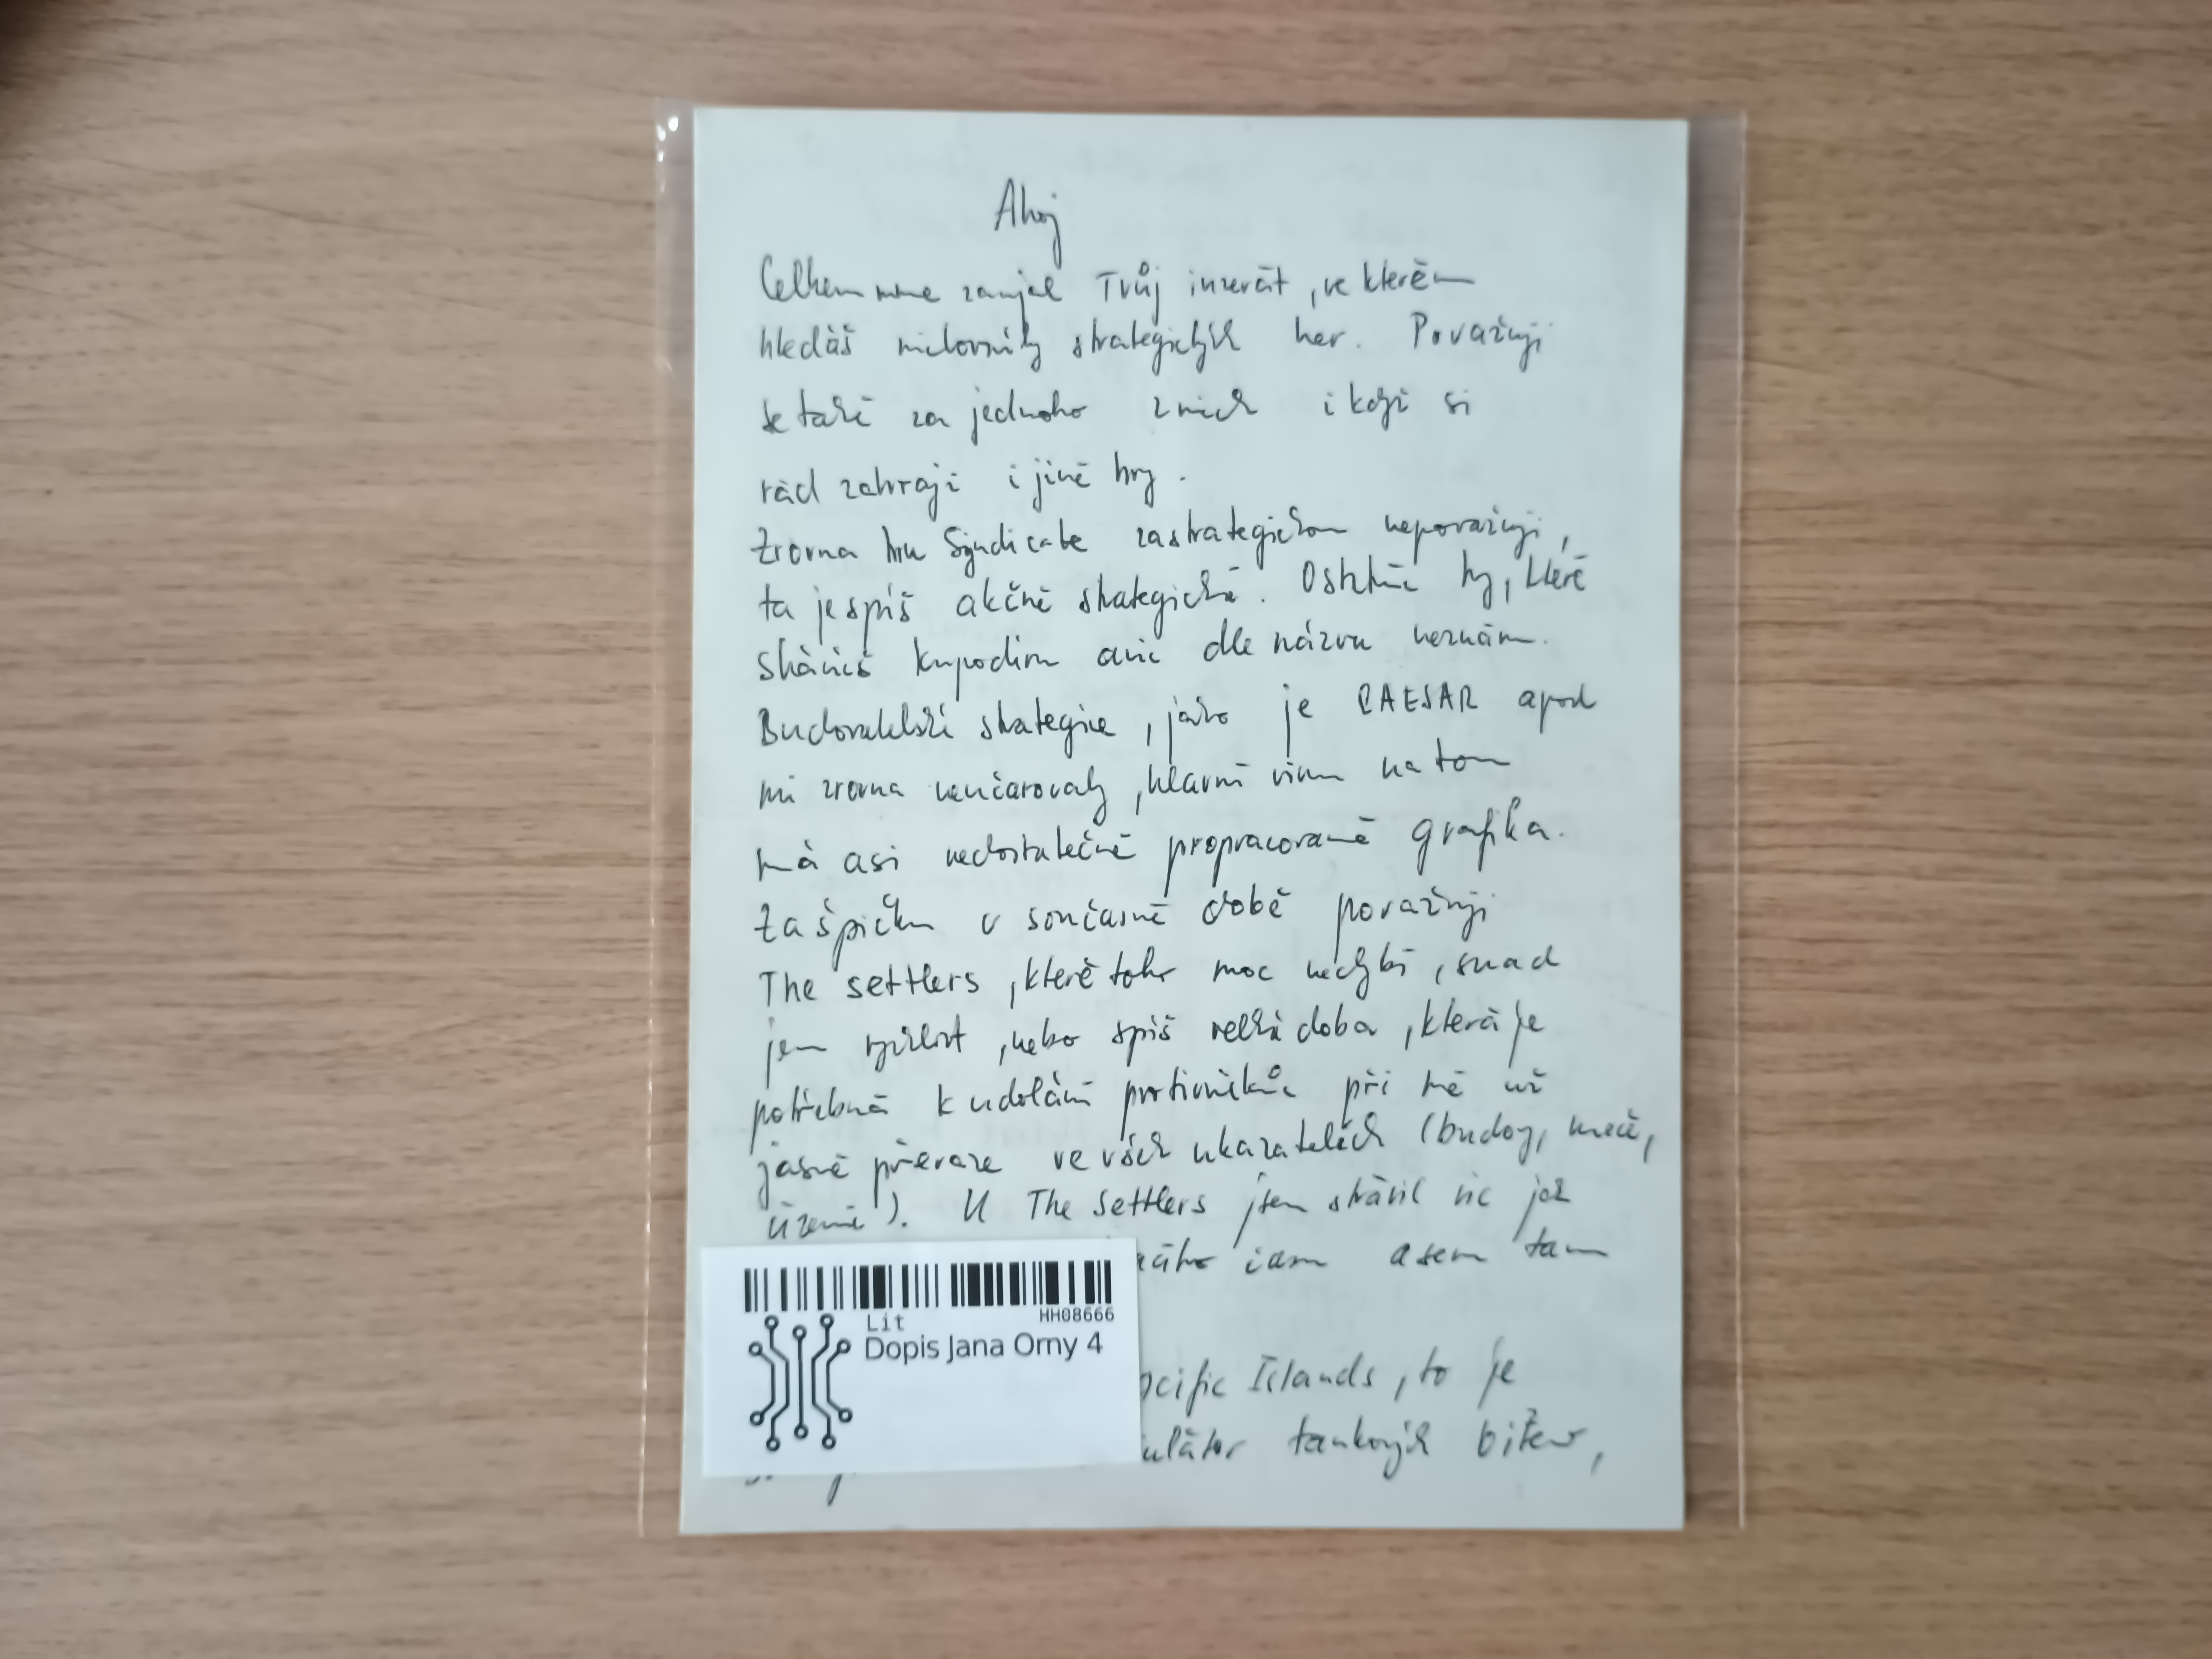 Ahoj
Celkem mne zaujal Tvůj inzerát, ve kterém
hledáš milovníky strategických her. Považuji
se také za jednoho z nich i když si
rád zahraji i jiné hry.
Zrovna hru Syndicate za strategickou nepovažuji,
ta je spíš akčně strategická. Ostatní hry, které
sháníš kupodivu ani dle názvu neznám.
Budovatelské strategie, jako je CAESAR apod
mi zrovna neučarovaly, hlavní vinu na tom
má asi nedostatečně propracovaná grafika.
Za špičku v současné době považuji
The settlers, které toho moc nechybí, snad
jen rychlost, nebo spíš velká doba, která je
potřebná k udolání protivníků při mé už
jasné převaze ve všech ukazatelích (budovy, meče,
území). U The Settlers jsem strávil víc jak
času a sem tam
Lit
HH08666
Dopis Jana Orny 4
Islands, to je
tankových bitev,